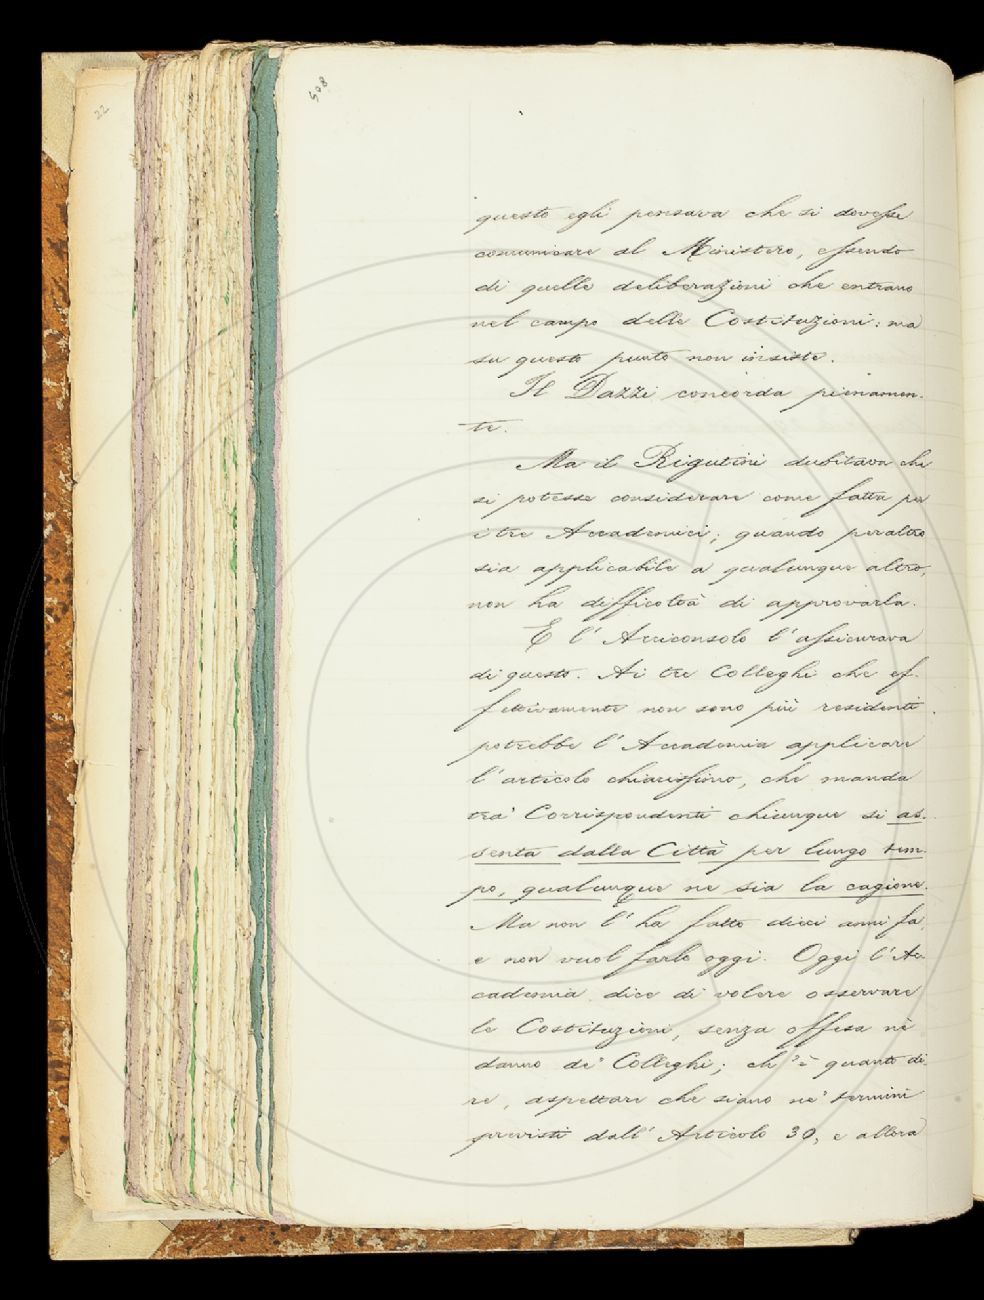 22
508
questo egli pensava che si dovesse
comunicare al Ministero, essendo
di quelle deliberazioni che entrano
nel campo delle Costituzioni: ma
su questo punto non insiste.
Il Dazzi concorda pienamen-
te.
Ma il Rigutini dubitava che
si potesse considerare come fatta per
i tre Accademici; quando peraltro
sia applicabile a qualunque altro,
non ha difficoltà di approvarla.
E l'Arciconsolo l'assicurava
di questo. Ai tre Colleghi che ef-
fettivamente non sono più residenti
potrebbe l'Accademia applicare
l'articolo chiarissimo, che manda
tra' Corrispondenti chiunque si as-
senta dalla Città per lungo tem-
po, qualunque ne sia la cagione.
Ma non l'ha fatto dieci anni fa,
e non vuol farlo oggi. Oggi l'Ac-
cademia dice di volere osservare
le Costituzioni, senza offesa nè
danno de' Colleghi; ch'è quanto di-
re, aspettare che siano ne' termini
previsti dall'Articolo 39, e allora